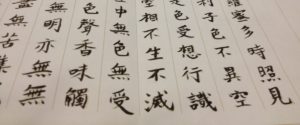 羅蜜多時照見
利子色不異空
是色受想行識
相不生不滅
中無色無受
色聲香味觸
無明亦無無
無苦集